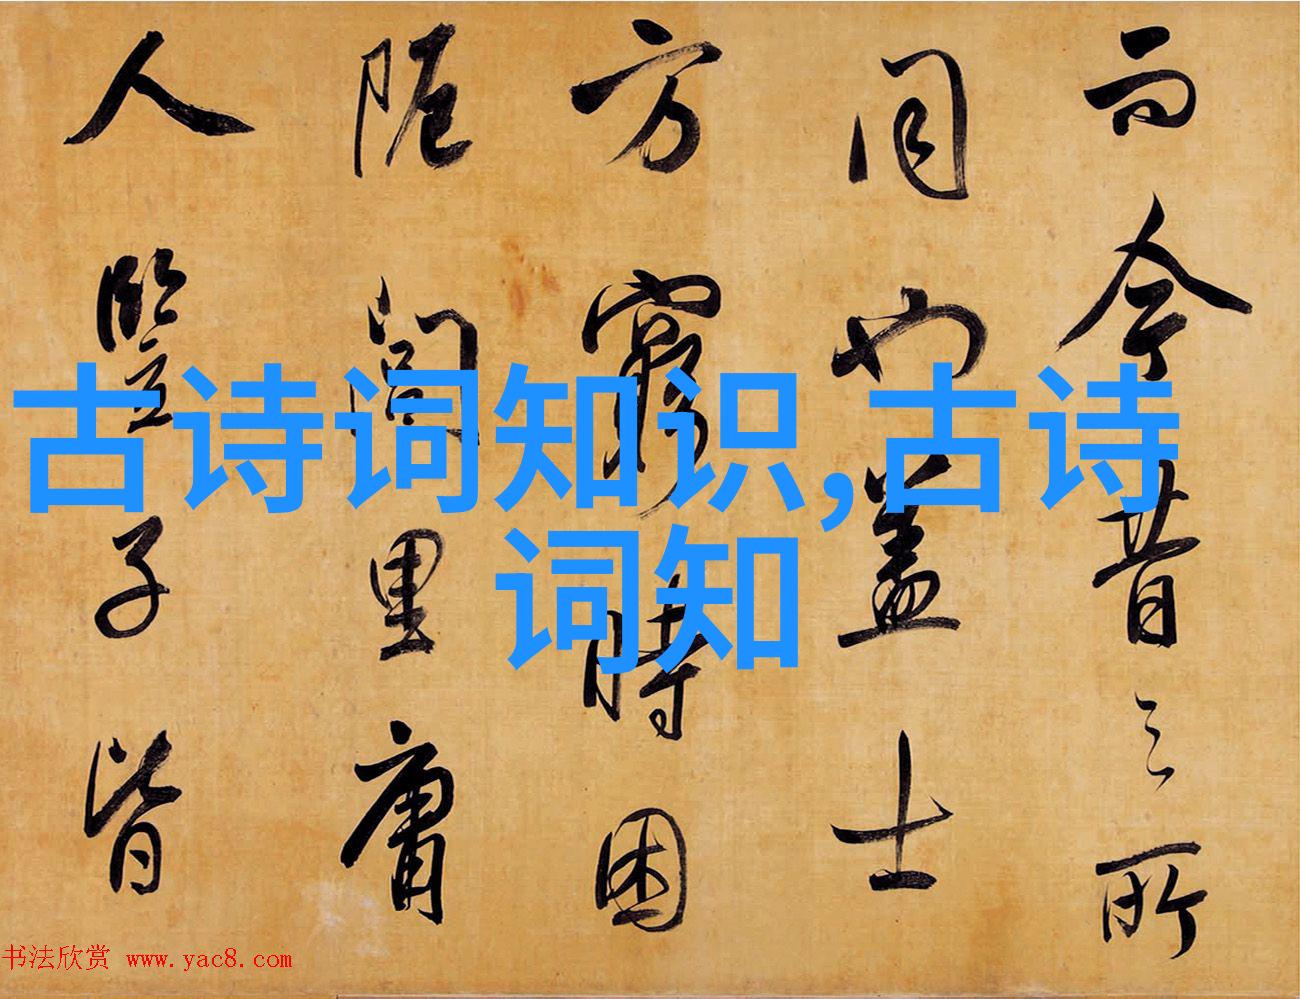 而今昔之所
同也盖士
方窮時困
阨閭里庸
人豎子皆
古诗词知识,古诗
词知
书法欣赏 www.yac8.com